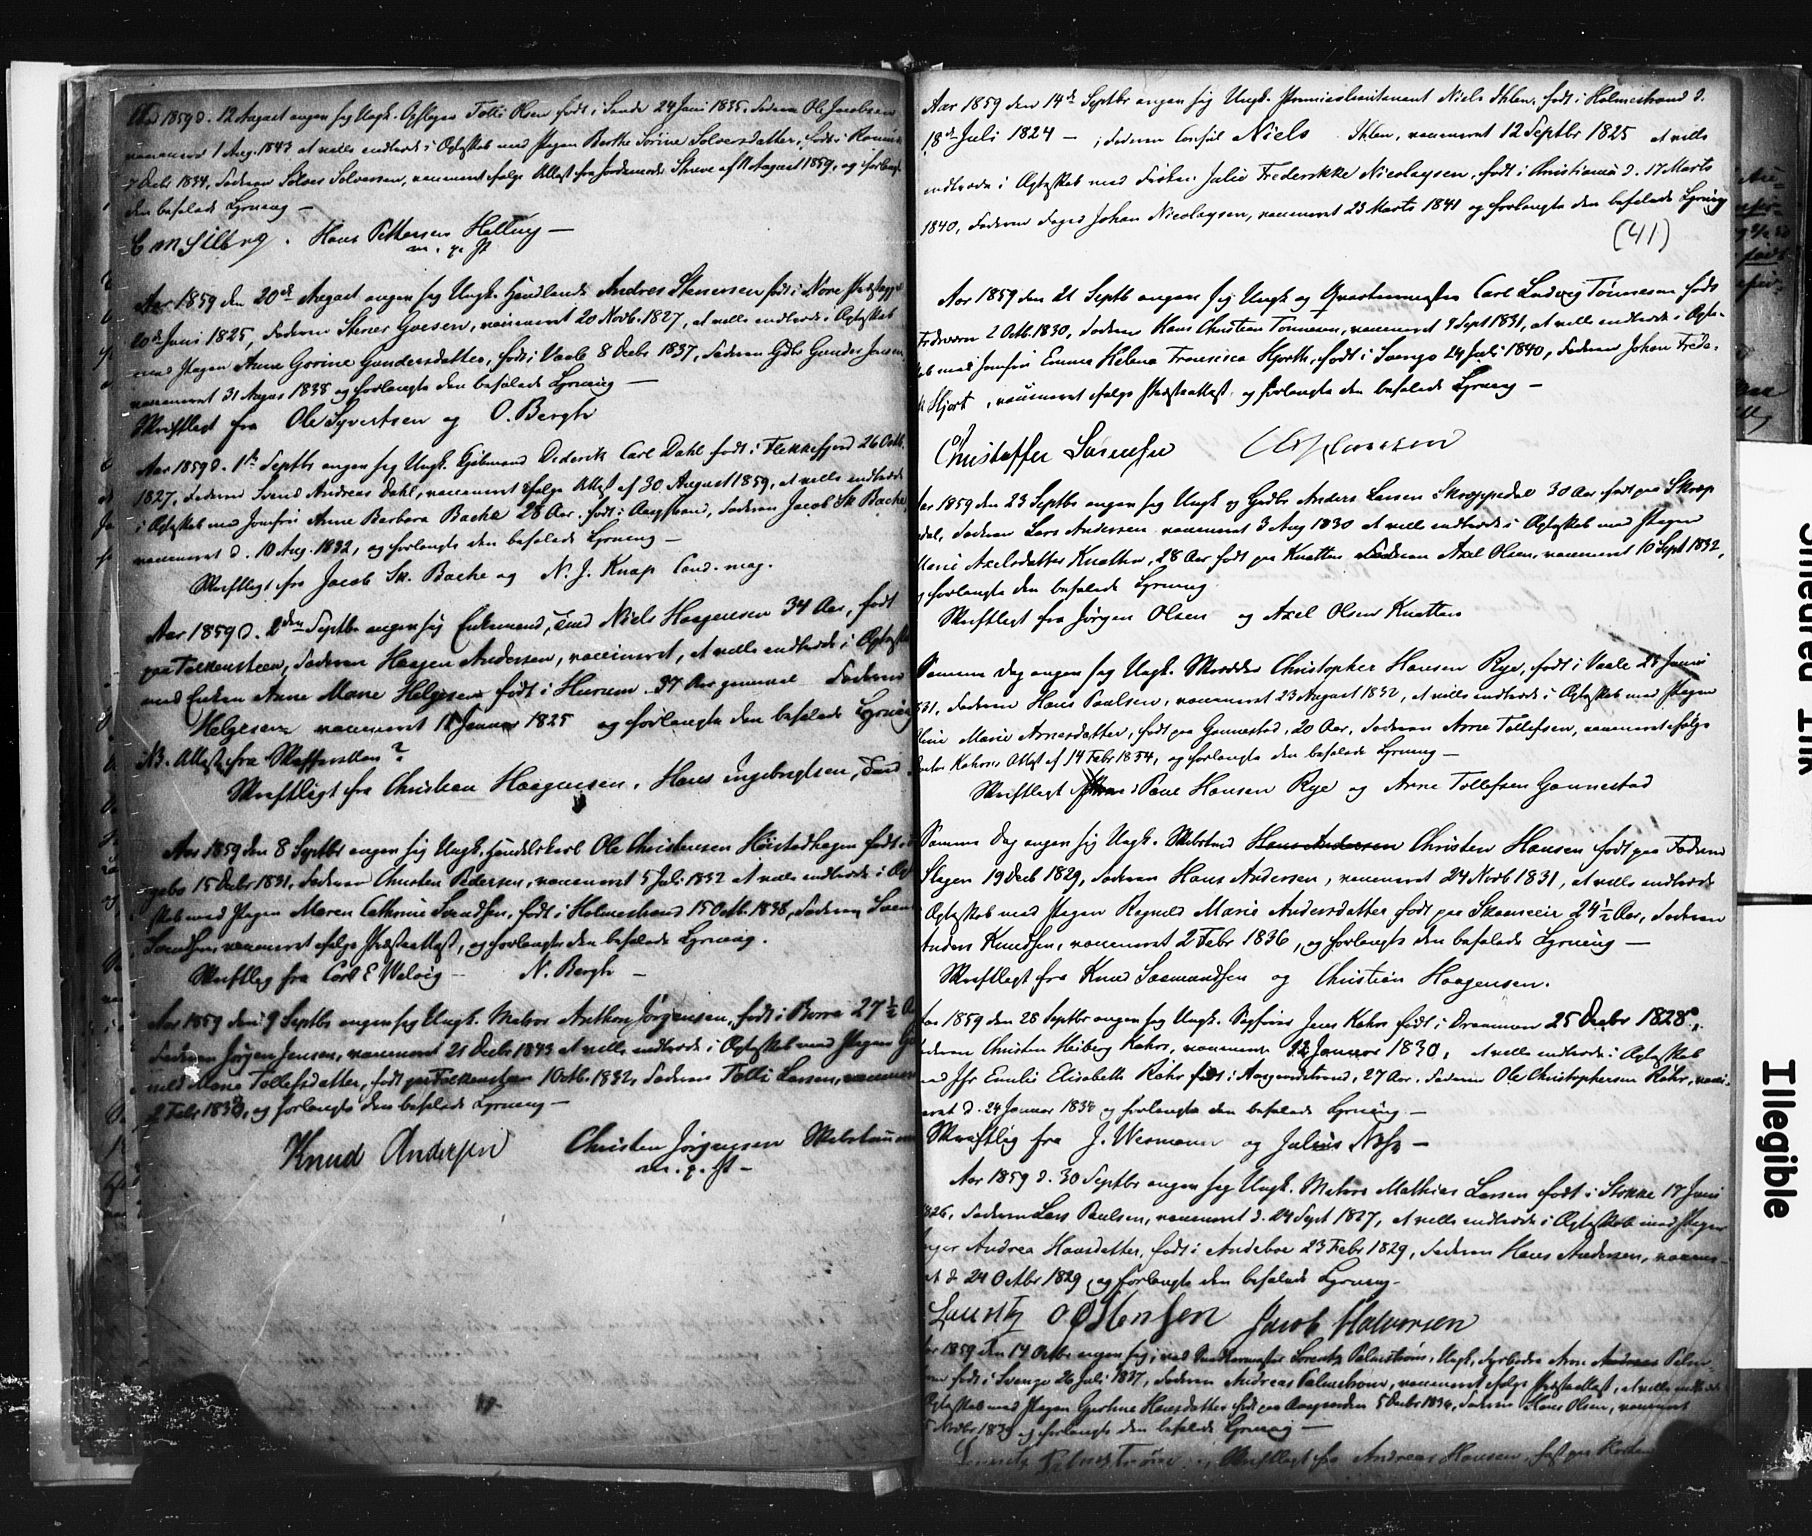 Aar 1859 d. 12 August angav sig Ungk. Tolli Olsen født i Sande 24 Juni 1835, Faderen Ole Jacobsen
vaccineret 1 Aug. 1843 at ville indtræde i Ægteskab med Pigen Berthe Sørine Solvesdatter, født i
7 Decbr 1834, Faderen Solver Solversen, vaccineret ifølge Attest fra Jordemoder af 11 August 1859, og forlangte
den befalede Lysning —
Hans Pettersen Helling —
m. p. P.
Aar 1859 den 20de August angav sig Ungk. Handlende Andres Stenersen født i Nore Præstegj
20de Juni 1825, Faderen Stener Goesen, vaccineret 20 Novb. 1827, at ville indtræde i Ægteskab
med Pigen Anne Gorine Gundersdatter, født i Vaale 8 Decbr 1837, Faderen Gdbr Gunder Jensen
vaccineret 31 August 1838 og forlangte den befalede Lysning —
Skriftligt fra Ole Syvertsen og O. Bergh
Aar 1859 d. 1ste Septbr angav sig Ungk. Kjøbmand Diderik Carl Dahl født i Flekkefjord 26 Octb.
1827, Faderen Svend Andreas Dahl, vaccineret ifølge Attest af 30 August 1859, at ville indtræde
i Ægteskab med Jomfru Anne Barbara Bache 28 Aar, født i Aasgstrand, Faderen Jacob Sk. Bache
vaccineret d. 10 Aug. 1832, og forlangte den befalede Lysning —
Skriftligt fra Jacob Sk. Bache og N. J. Knap Cand. mag.
Aar 1859 d. 2den Septbr angav sig Enkemand, Tind Niels Haagensen 34 Aar, født
paa Falkensteen, Faderen Haagen Andersen, vaccineret, at ville indtræde i Ægteskab
med Enken Anne Marie Helgesen født i Hurum 37 Aar gammel Faderen
Helgesen vaccineret 11 Januar 1825 og forlangte den befalede Lysning
NB. Attest fra Skifteretten?
Skriftligt fra Christian Haagensen, Hans Engebregtsen,
Aar 1859 den 8 Septbr angav sig Ungk. Handelskarl Ole Christensen Høistadhagen født i
15 Decbr 1831, Faderen Christen Pedersen, vaccineret 5 Juli 1832 at ville indtræde i Æg
skab med Pigen Maren Cathrine Svendsen, født i Holmestrand 15 Octb. 1838, Faderen Svend
Svendsen, vaccineret ifølge Præsteattest, og forlangte den befalede Lysning.
Skriftlig fra Carl E Welvig — N. Bergh —
Aar 1859 den 9 Septbr angav sig Ungk. Matros Anthon Jørgensen, født i Borre 27½ A
Faderen Jørgen Jensen, vaccineret 21 Decbr 1843 at ville indtræde i Ægteskab med Pigen
Marie Tollefsdatter, født paa Falkensteen 1 Octb. 1832, Faderen Tolli Larsen, vaccineret
2 Febr 1838, og forlangte den befalede Lysning —
Knud Andersen Christen Jørgensen Skibstømm
m. p. P. —
Aar 1859 den 14de Septbr angav sig Ungk. Premierlieutenant Niels Ihlen, født i Holmestrand d.
18de Juli 1824 — , Faderen Consul Niels Ihlen, vaccineret 12 Septbr 1825 at ville
indtræde i Ægteskab med Frøken Julie Frederikke Nicolaysen, født i Christiania d. 17 Marts
1840, Faderen Foged Johan Nicolaysen, vaccineret 23 Marts 1841 og forlangte den befalede Lysning
(41)
Aar 1859 den 21 Septb angav sig Ungk og Qvartermester Carl Ludvig Tønnesen født
Fredsværn 2 Octb. 1830, Faderen Hans Christian Tønnesen, vaccineret 9 Sept 1831, at ville indtræde i Ægte-
skab med Jomfru Emma Helena Francisca Hjorth, født i Svensgo 24 Juli 1840, Faderen Johan Frede-
k Hjort, vaccineret ifølge Præsteattest og forlangte den befalede Lysning —
Christoffer Sørensen
Aar 1859 den 23 Septbr angav sig Ungk og Gudbr Anders Larsen Skroppedal 30 Aar født paa Skrop
dal, Faderen Lars Andersen vaccineret 3 Aug 1830 at ville indtræde i Ægteskab med Pigen
Marie Axelsdatter Knatten, 28 Aar født paa Knatten Faderen Axel Olsen, vaccineret 10 Sept 1832,
og forlangte den befalede Lysning
Skriftligt fra Jørgen Olsen og Axel Olsen Knatten
Samme Dag angav sig Ungk. Skrædder Christopher Hansen Rye, født i Vaale 28 Juni
831, Faderen Hans Paulsen, vaccineret 23 August 1832, at ville indtræde i Ægteskab med Pigen
line Marie Arnesdatter, født paa Gannestad, 20 Aar, Faderen Arne Tollefsen, vaccineret ifølge
Doctor Kahrs Attest af 14 Febr 1854, og forlangte den befalede Lysning —
Skriftligt fra Paul Hansen Rye og Arne Tollefsen Gannestad
Samme Dag angav sig Ungk. Skibstmd Hans Andersen Christen Hansen født paa Foden
Slagen 19 Decb 1829, Faderen Hans Andersen, vaccineret 24 Novb 1831, at ville indtræde
i Ægteskab med Pigen Ragnild Marie Andersdatter født paa 24½ Aar, Faderen
Anders Knudsen, vaccineret 2 Febr 1836, og forlangte den befalede Lysning —
Skriftligt fra Knud Saamundsen og Christian Haagensen.
Aar 1859 den 28 Septbr angav sig Ungk. Jens Kahrs født i Drammen 25 Decbr 1828,
Faderen Christen Heiberg Kahrs, vaccineret 12 Januar 1830, at ville indtræde i Ægteskab
med Jfr Emilie Elisabeth Røhr født i Aasgaardstrand, 27 Aar, Faderen Ole Christophersen Røhr, vacci-
neret d. 24 Januar 1834 og forlangte den befalede Lysning —
Skriftlig fra J. Wesmann og Julius —
Aar 1859 d. 30 Septbr angav sig Ungk. Matros Mathias Larsen født i Stokke 17 Juni
1826, Faderen Lars Paulsen, vaccineret d. 24 Sept 1827, at ville indtræde i Ægteskab med Pigen
Inger Andrea Hansdatter, født i Andebo 23 Febr 1829, Faderen Hans Andersen, vaccine-
ret d. 24 Octbr 1829, og forlangte den befalede Lysning.
Lauritz Jacob Halvorsen
Aar 1859 den 14 Octbr angav sig, ved Lorentz Palmstrøm, Ungk. Arne Andreas Palm
født i Svensgo 26 Juli 1837, Faderen Andreas Palmstrøm, vaccineret ifølge Præsteattest, at ville indtræde
Ægteskab med Pigen Gjertine Hansdatter født paa Aasgaarden 5 Decbr 1834, Faderen Hans Olsen, vaccineret
5 Novbr 183 og forlangte den befalede Lysning —
Palmstrøm Skriftligt fra Andreas Hansen, fast paa
Smeared Ink
Illegible